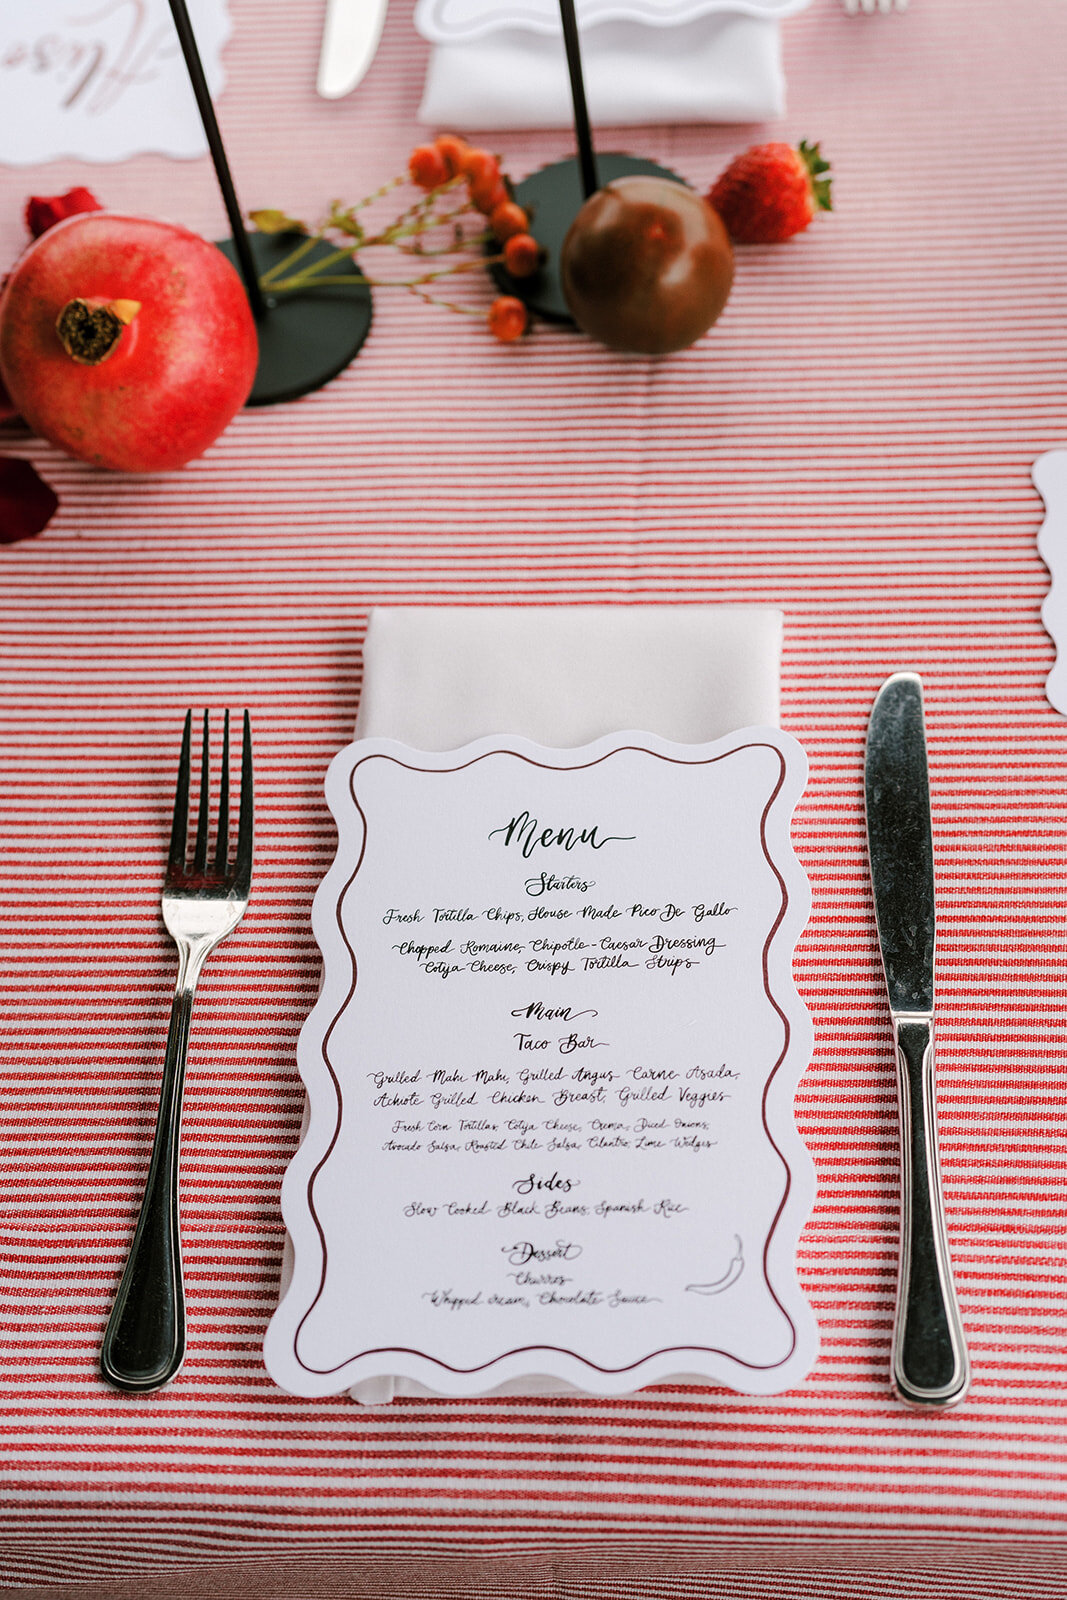 Alise
Menu
Starters
Fresh Tortilla Chips, House Made Pico De Gallo
Chopped Romaine, Chipotle-Caesar Dressing
Cotija Cheese, Crispy Tortilla Strips
Main
Taco Bar
Grilled Mahi Mahi, Grilled Angus Carne Asada,
Achiote Grilled Chicken Breast, Grilled Veggies
Fresh Corn Tortillas, Cotija Cheese, Crema, Diced Onions,
Avocado Salsa, Roasted Chile Salsa, Cilantro, Lime Wedges
Sides
Slow Cooked Black Beans, Spanish Rice
Dessert
Churros
Whipped cream, Chocolate Sauce